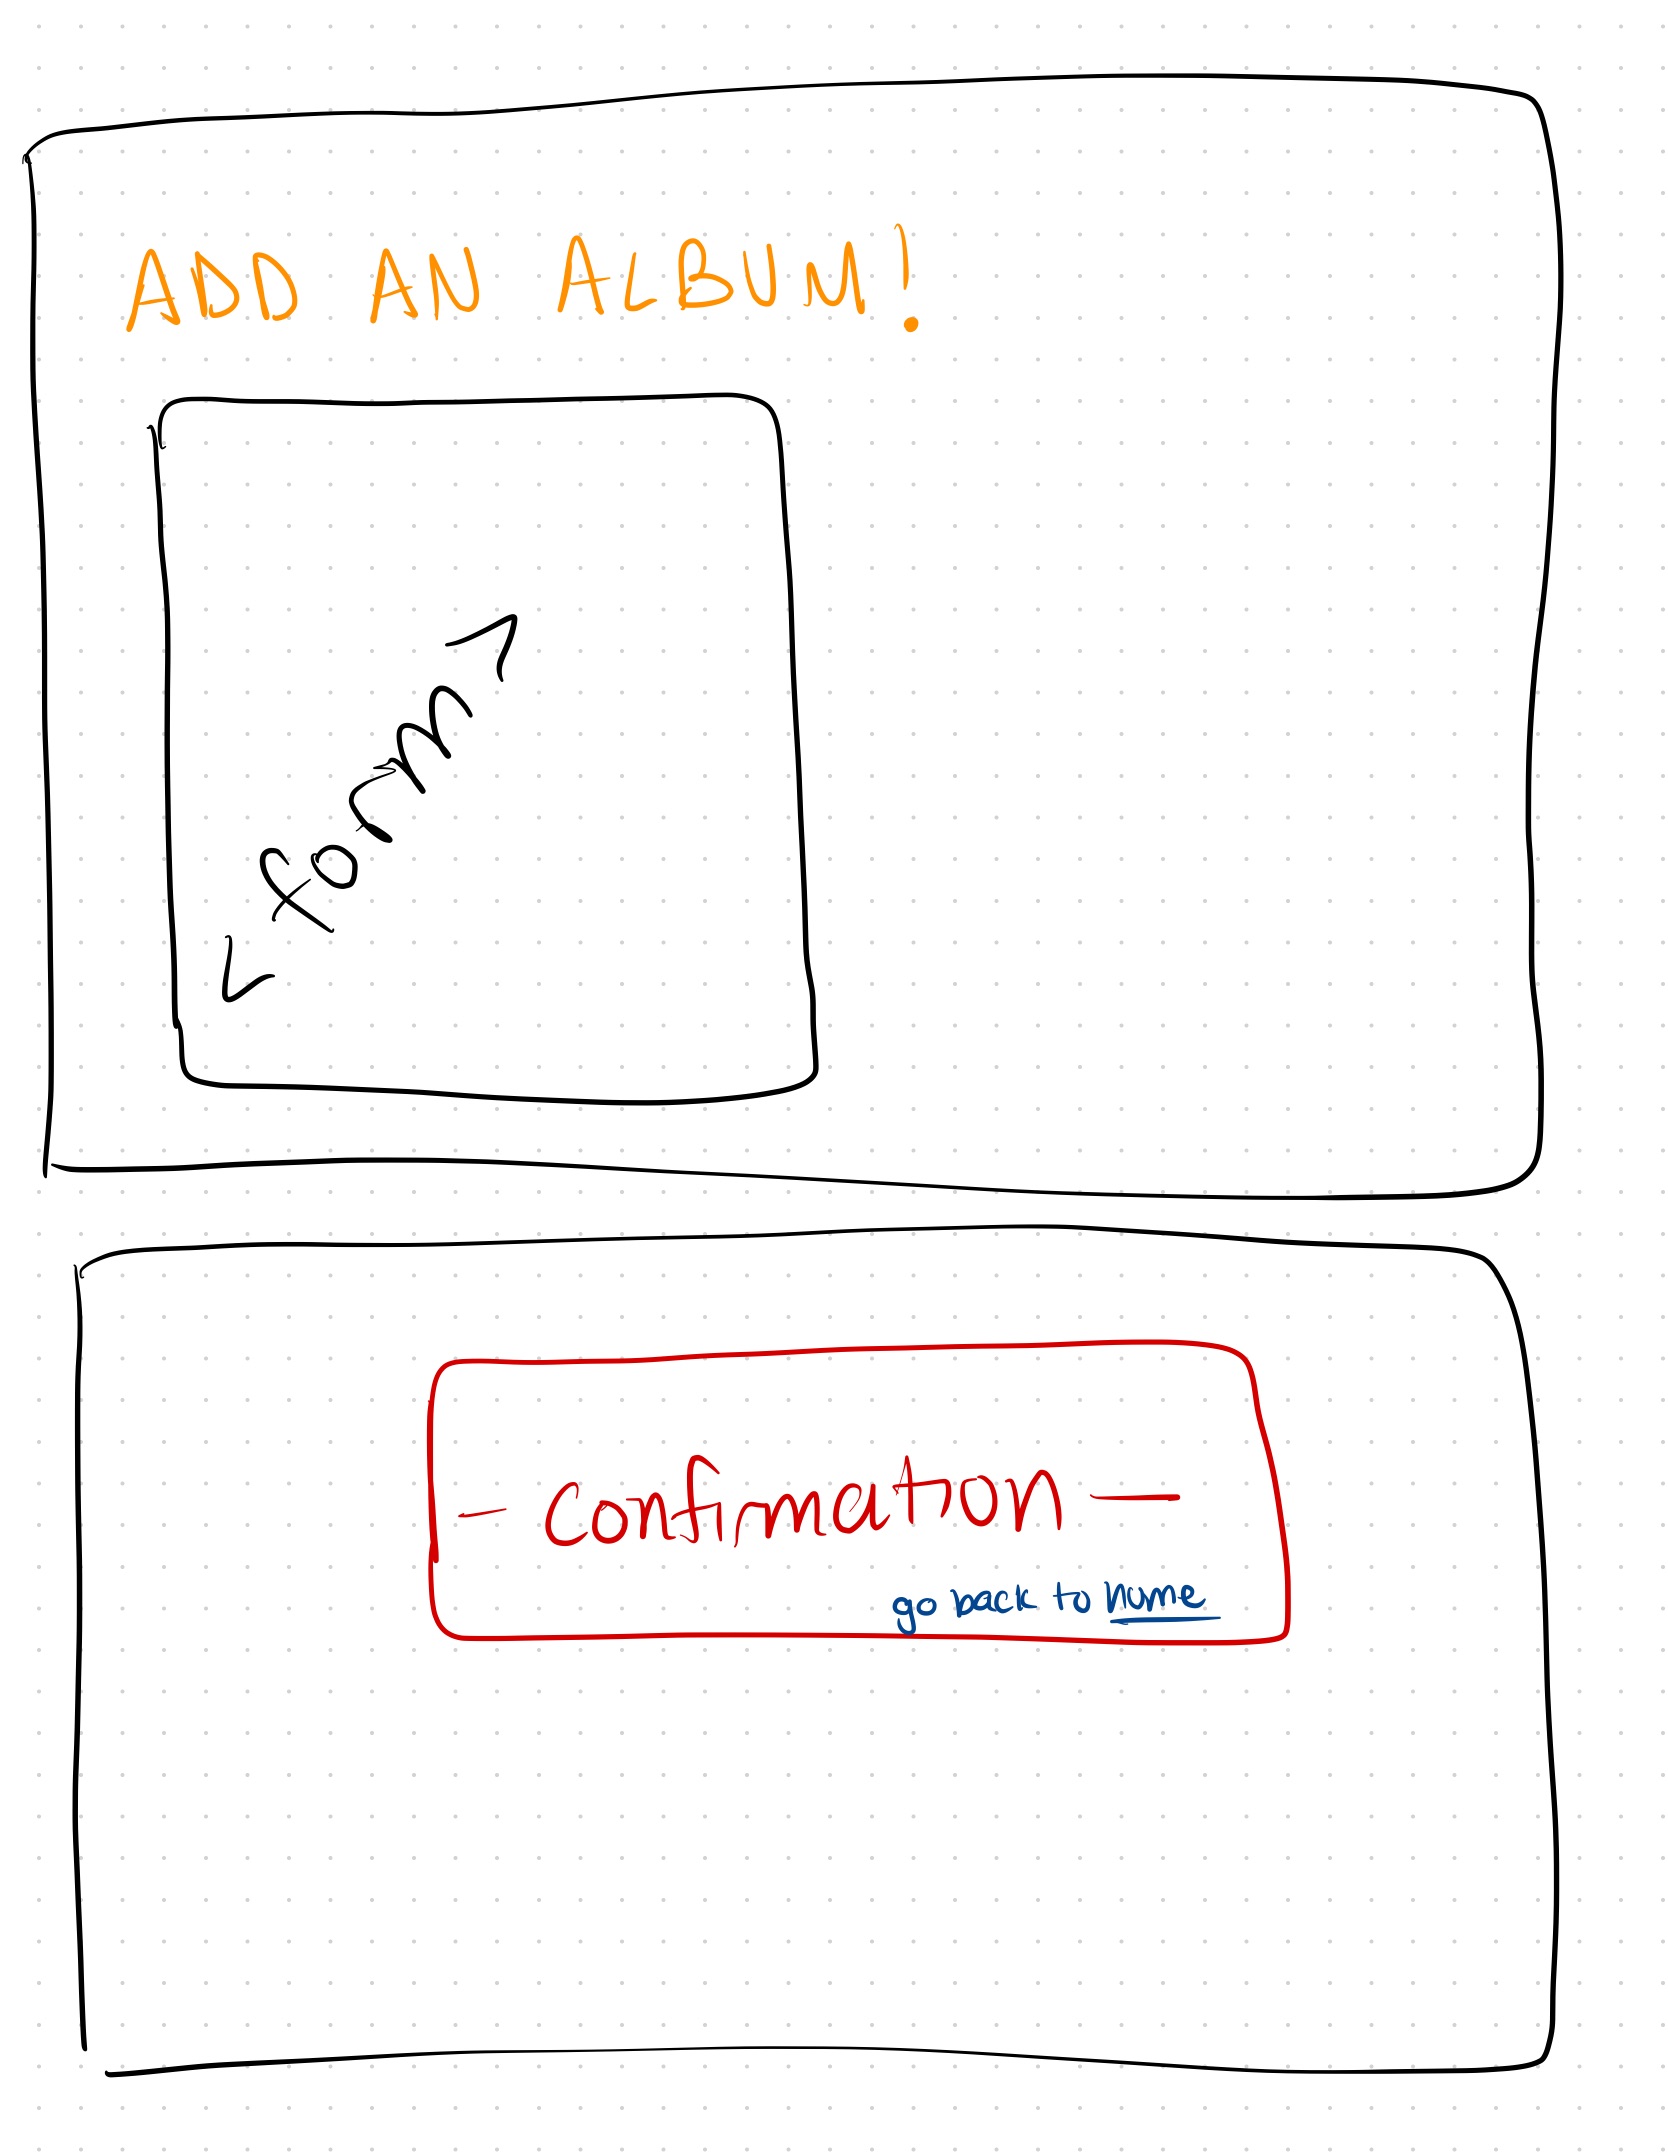 ADD AN ALBUM!
< form >
- confirmation -
go back to home